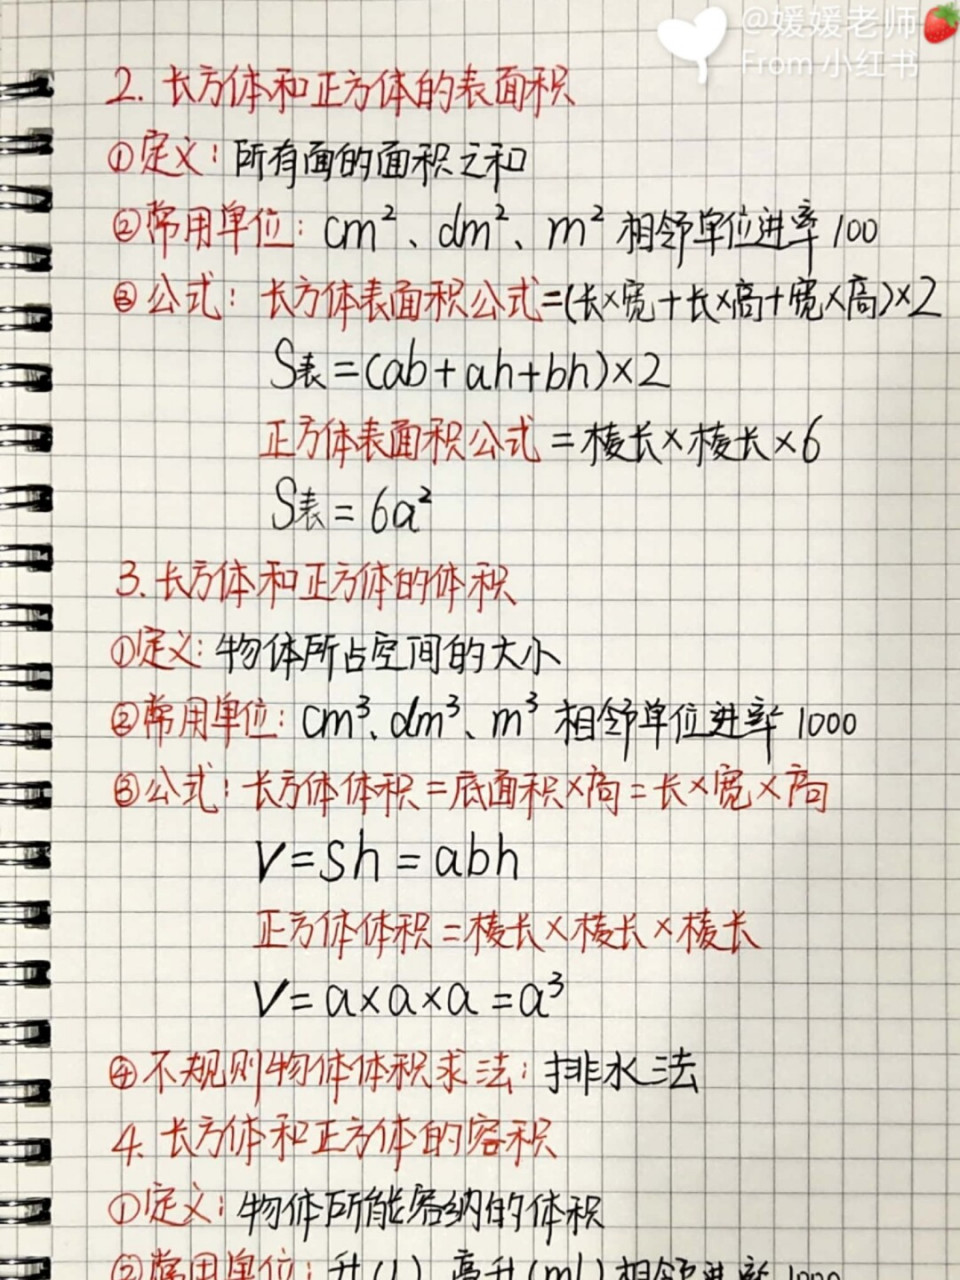 @媛媛老师🍓
From 小红书
2. 长方体和正方体的表面积
①定义：所有面的面积之和
②常用单位：cm²、dm²、m² 相邻单位进率100
③公式：长方体表面积公式=(长×宽+长×高+宽×高)×2
S表=(ab+ah+bh)×2
正方体表面积公式=棱长×棱长×6
S表=6a²
3. 长方体和正方体的体积
①定义：物体所占空间的大小
②常用单位：cm³、dm³、m³ 相邻单位进率1000
③公式：长方体体积=底面积×高=长×宽×高
V=sh=abh
正方体体积=棱长×棱长×棱长
V=a×a×a=a³
④不规则物体体积求法：排水法
4. 长方体和正方体的容积
①定义：物体所能容纳的体积
②常用单位：升(L) 毫升(ml) 相邻进率1000